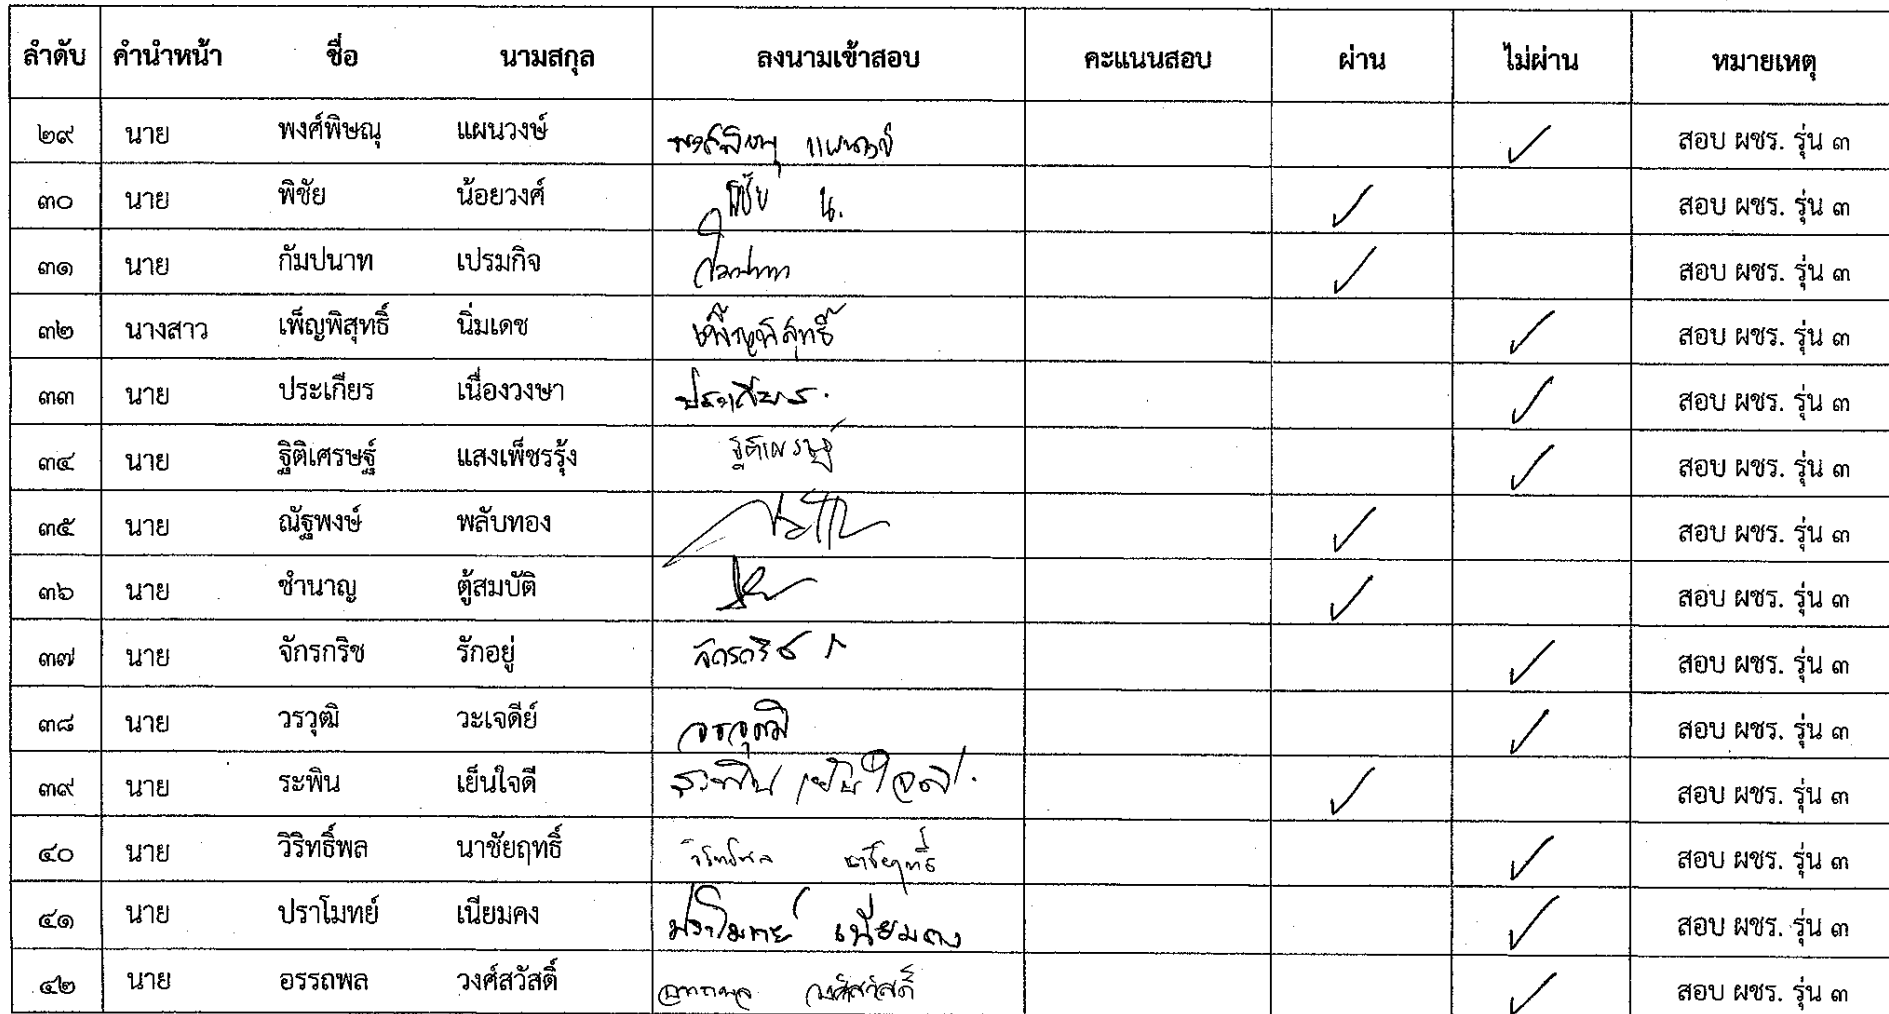 ลำดับ คำนำหน้า ชื่อ นามสกุล ลงนามเข้าสอบ คะแนนสอบ ผ่าน ไม่ผ่าน หมายเหตุ
๒๙ นาย พงศ์พิษณุ แผนวงษ์ พงศ์พิษณุ แผนวงษ์ สอบ ผชร. รุ่น ๓
๓๐ นาย พิชัย น้อยวงศ์ พิชัย น. สอบ ผชร. รุ่น ๓
๓๑ นาย กัมปนาท เปรมกิจ กัมปนาท สอบ ผชร. รุ่น ๓
๓๒ นางสาว เพ็ญพิสุทธิ์ นิ่มเดช เพ็ญพิสุทธิ์ สอบ ผชร. รุ่น ๓
๓๓ นาย ประเกียร เนื่องวงษา ประเกียร. สอบ ผชร. รุ่น ๓
๓๔ นาย ฐิติเศรษฐ์ แสงเพ็ชรรุ้ง ฐิติเศรษฐ์ สอบ ผชร. รุ่น ๓
๓๕ นาย ณัฐพงษ์ พลับทอง สอบ ผชร. รุ่น ๓
๓๖ นาย ชำนาญ ตู้สมบัติ สอบ ผชร. รุ่น ๓
๓๗ นาย จักรกริช รักอยู่ จักรกริช ร สอบ ผชร. รุ่น ๓
๓๘ นาย วรวุฒิ วะเจดีย์ วรวุฒิ สอบ ผชร. รุ่น ๓
๓๙ นาย ระพิน เย็นใจดี ระพิน เย็นใจดี. สอบ ผชร. รุ่น ๓
๔๐ นาย วิริทธิ์พล นาชัยฤทธิ์ วิริทธิ์พล นาชัยฤทธิ์ สอบ ผชร. รุ่น ๓
๔๑ นาย ปราโมทย์ เนียมคง ปราโมทย์ เนียมคง สอบ ผชร. รุ่น ๓
๔๒ นาย อรรถพล วงศ์สวัสดิ์ อรรถพล วงศ์สวัสดิ์ สอบ ผชร. รุ่น ๓